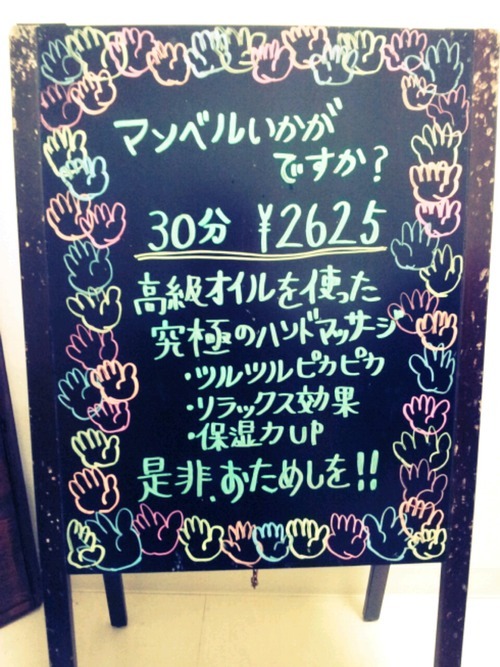 マンベルいかが
ですか?
30分 ¥2625
高級オイルを使った
究極のハンドマッサージ
・ツルツルピカピカ
・リラックス効果
・保湿力UP
是非、おためしを!!